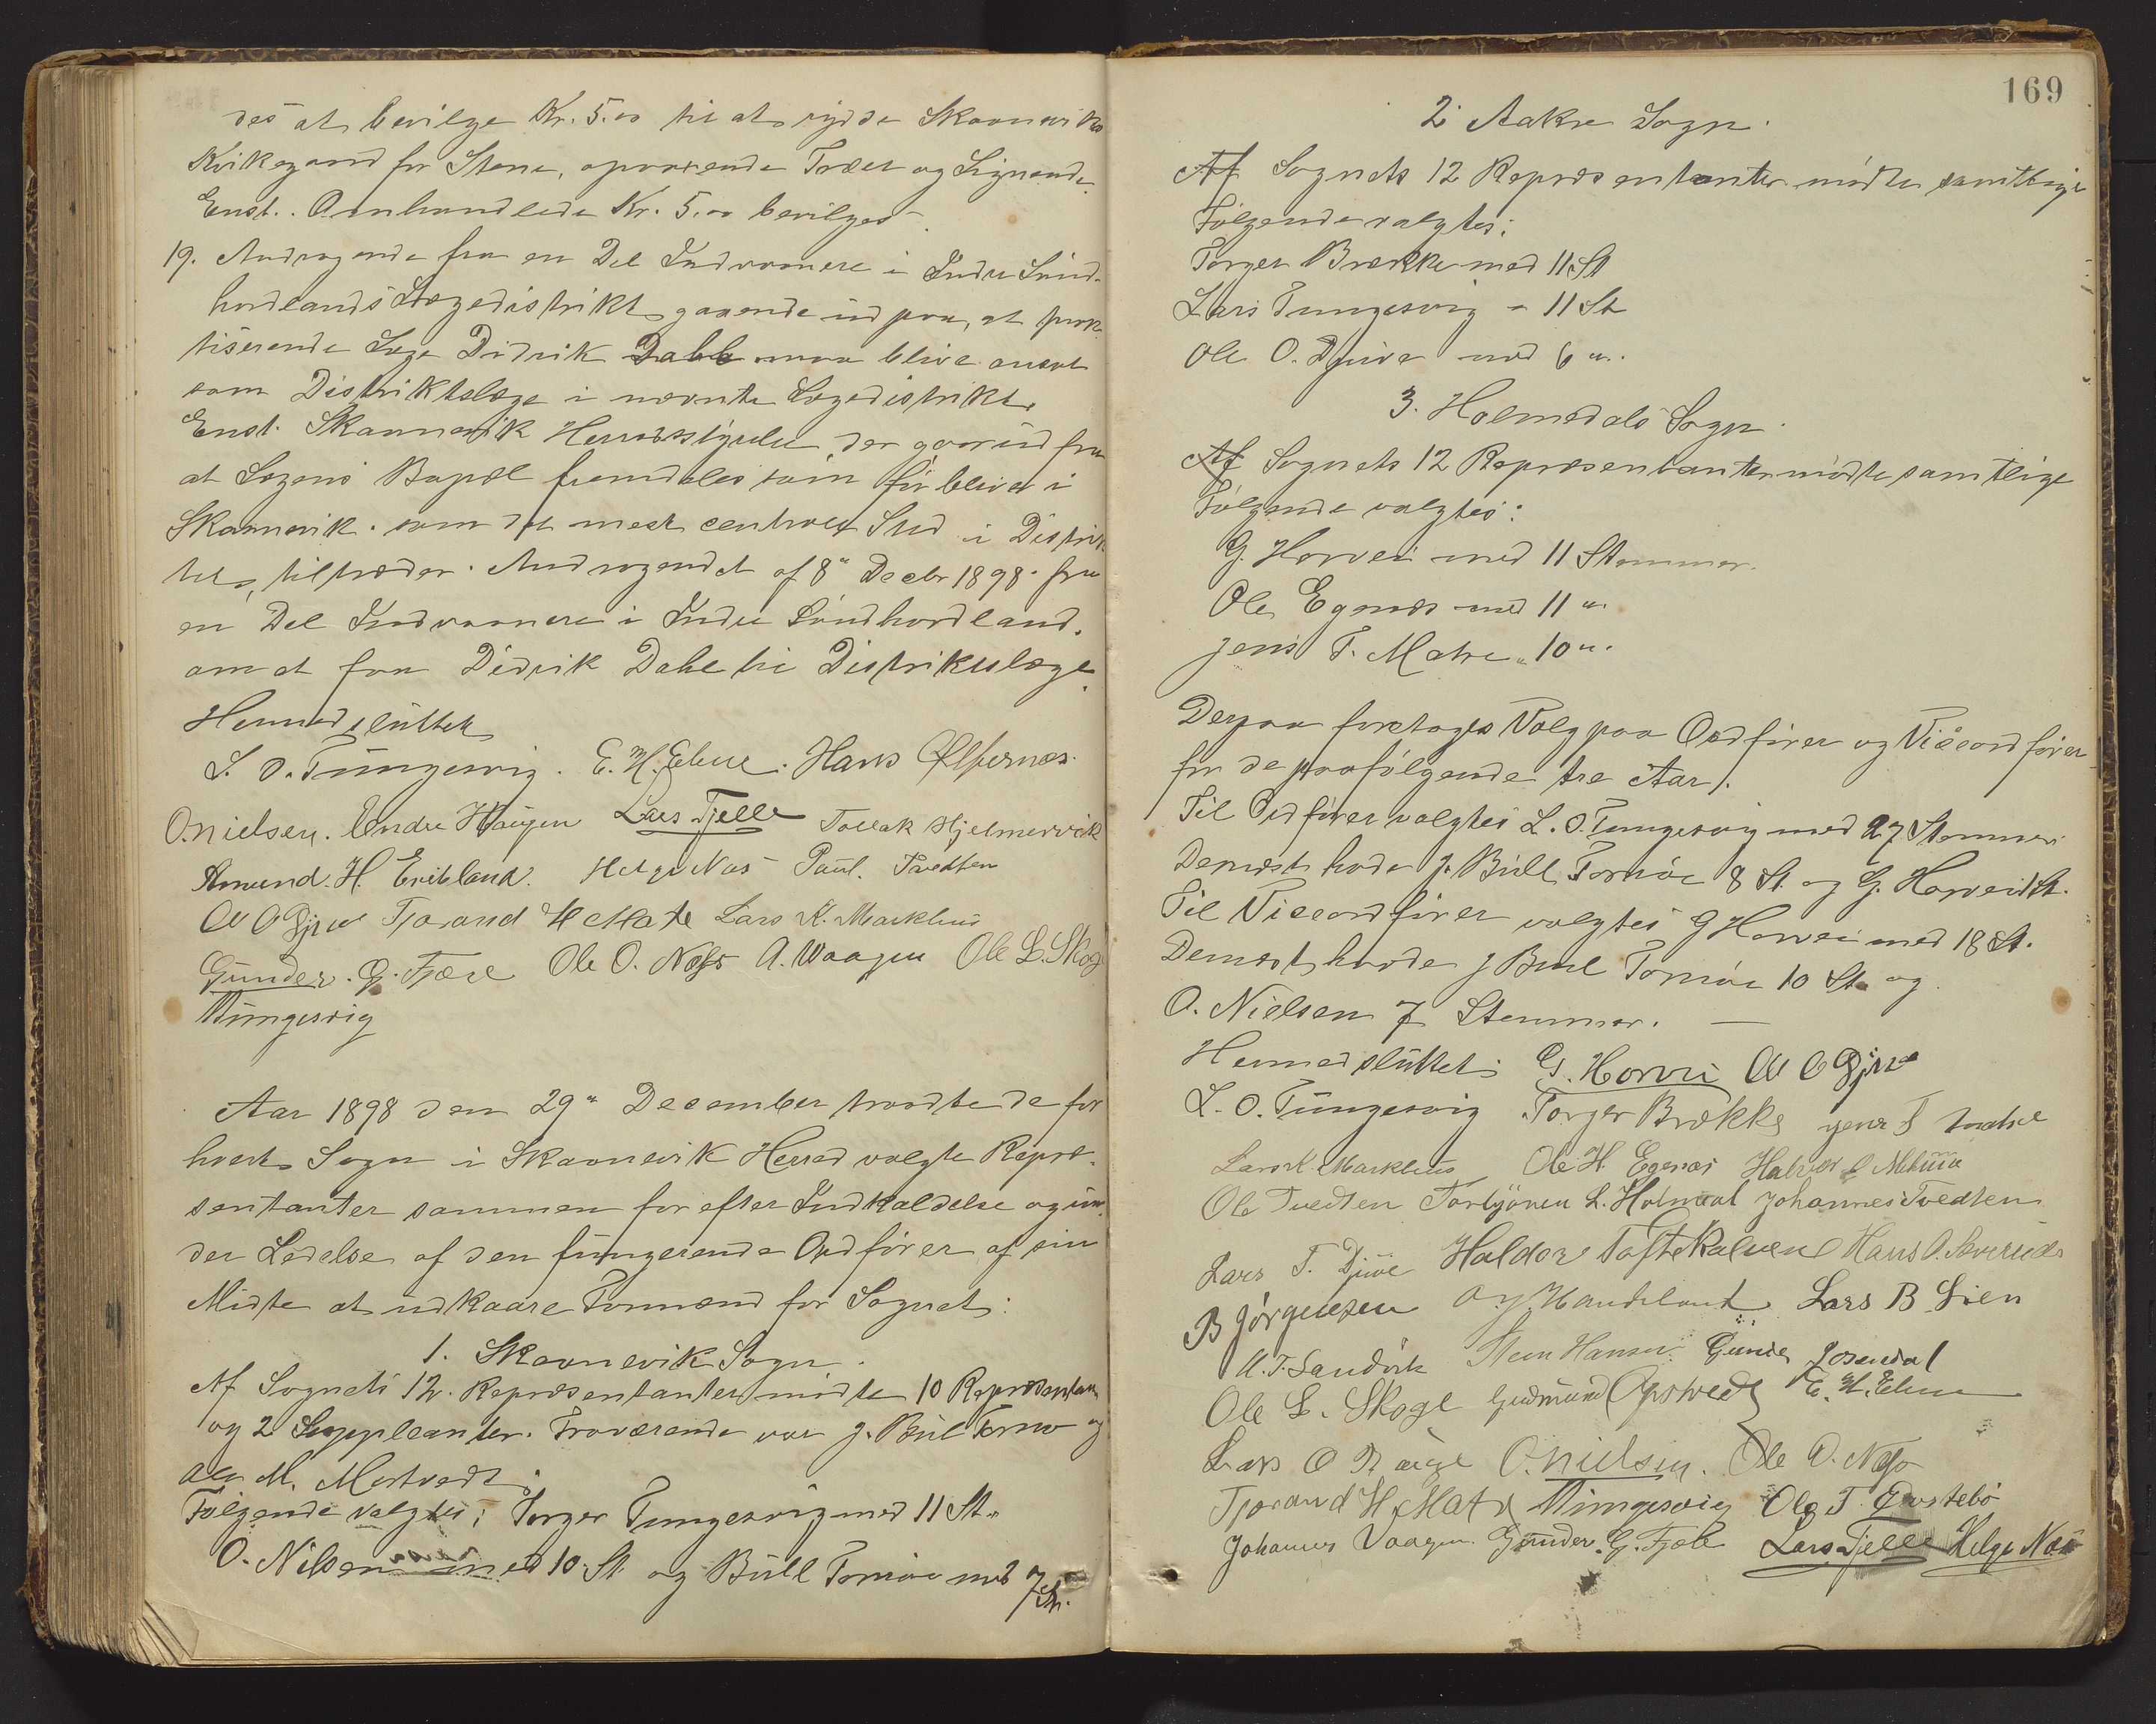 des at bevilge Kr. 5.00 til at rydde Skaanevik
Kirkegaard for Stene, opvoxende Træer og Lignende.
Enst. Omhandlede Kr. 5.00 bevilges.
19. Andragende fra en Del Indvaanere i Indre Sönd-
hordlands Lægedistrikt gaaende ud paa, at prak
tiserende Læge Didrik Dahl maa blive ansat
som Distriktslæge i nævnte Lægedistrikt.
Enst. Skaanevik Herredsstyrelse, der gaar ud fra
at Lægens Bopæl fremdeles som för bliver i
Skaanevik som det mest centrale Sted i Distrik
tet, tiltræder Andragendet af 8de Decbr 1898 fra
en Del Indvaanere i Indre Söndhordland,
om at faa Didrik Dahl til Distriktslæge.
Hermed sluttet
L. O. Tungesvig. E. M. Ebne. Hans Ølfernæs.
O. Nielsen. Endre Haugen Lars Fjelle Tollak Hjelmervik
Amund. H. Eritsland. Helge Næs Paul. Tvedten
Ol O Djuve Tjorand H Matre Lars K. Markhus
Gunder. G. Fjære Ole O. Næss A. Waagen Ole L. Skog
TTungesvig
Aar 1898 den 29de December traadte de for
hvert Sogn i Skaanevik Herred valgte Repræ-
sentanter sammen for efter Indkaldelse og un-
der Ledelse af den fungerende Ordförer af sin
Midte at udkaare Formænd for Sognet:
1. Skaanevik Sogn.
Af Sognets 12. Repræsentanter mödte 10 Repræsentan
og 2 Suppleanter. Fraværende var J. Bull Tornöe og
Ole M. Mortvedt.
Fölgende valgtes: Torger Tungesvig med 11 St.
O. Nilsen med 10 St og Bull Tornöe med 7 St.
169
2. Aakre Sogn.
Af Sognets 12 Repræsentanter mödte samtlige
Fölgende valgtes:
Torger Brække med 11 St
Lars Tungesvig - 11 St
Ole O. Djuve med 6 "
3. Holmedals Sogn.
Af Sognets 12 Repræsentanter mödte samtlige
Fölgende valgtes:
G. Horvei med 11 Stemmer.
Ole Egenæs med 11 "
Jens T. Matre " 10 "
Derpaa foretoges Valg paa Ordförer og Viceordförer
for de paafölgende tre Aar.
Til Ordförer valgtes L. O. Tungesvig med 27 Stemmer
Dernæst havde J. Bull Tornöe 8 St. og G. Horvei 1 St.
Til Viceordförer valgtes G Horvei med 18 St.
Dernæst havde J Bull Tornöe 10 St. og
O. Nielsen 7 Stemmer. —
Hermed sluttet: G. Horvei Ol O Djuve
L. O. Tungesvig Torger Brække Jens T Matre
Lars K. Markhus Ole H. Egenæs Halvor
Ole Tvedten Torbjörnen L. Holmedal Johannes Tvedten
Lars T. Djuve Haldor Toftekalven Hans O. Sæverud
B Jörgensen O J Handeland Lars B Lien
A. T. Sandvik Steen Hansen Gunder Rosendal
Ole L. Skoge Gudmund Opstvedt E. M. Ebne
Lars O Hauge O. Nielsen. Ole O. Næss
Tjorand H Matre TTungesvig Ole T. Edvstebö
Johannes Vaagen Gunder. G. Fjære Lars Fjelle Helge Næs